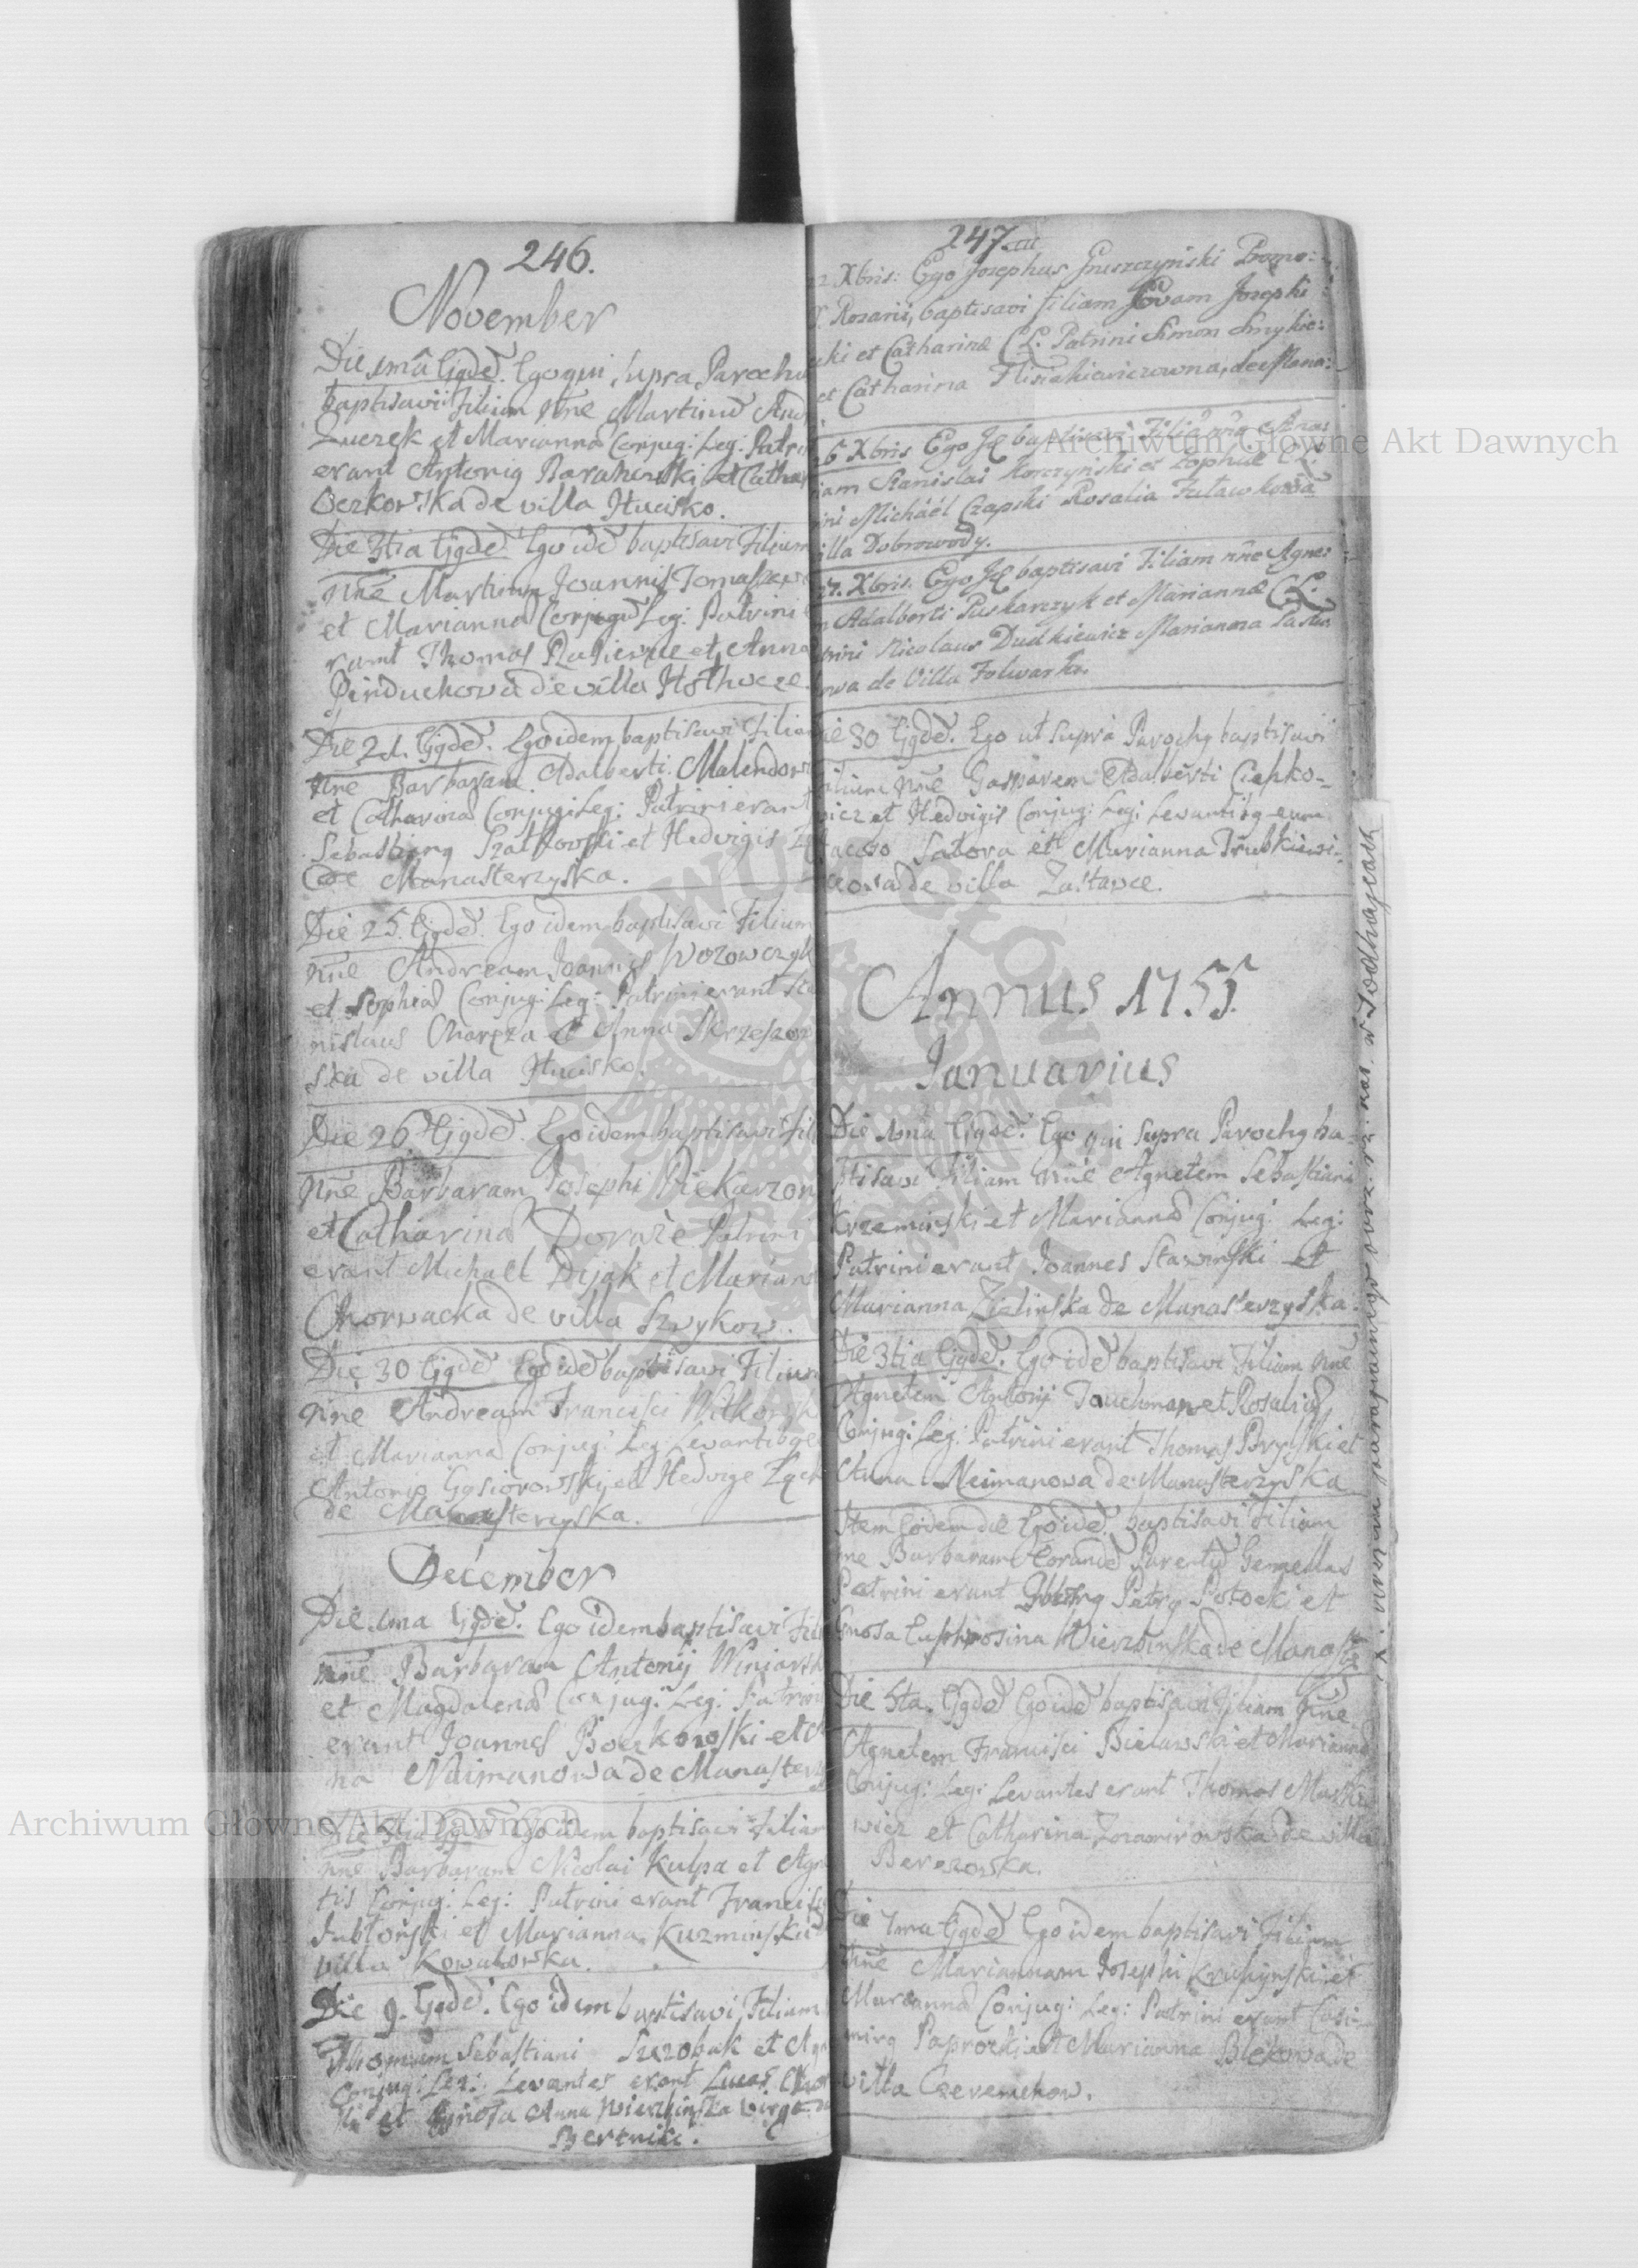 246.
November
Die 1mâ Ejqdē. Ego qui supra Parochu
baptisavi Filium nn̄e Martinū And
Luczek et Marianna Conjug: Leg: Patri
erant Antonig Baranowski et Catha
Oczkowska de villa Hucisko.
Die 3tia Ejqdē Ego idē baptisavi Filium
nn̄e Martinum Joannis Tomaszew
et Marianna Conjugū Leg: Patrini
rant Thomas et Anna
de villa
Die 21. Ejqdē. Ego idem baptisavi Filia
nn̄e Barbaram Adalberti Malendow
et Catharina Conjug: Leg: Patrini erant
Sebastiang Szatkowski et Hedvigis
de Manasterzyska.
Die 25. Ejqdē. Ego idem baptisavi Filium
nn̄e Andream Joannis Wozowczyk
et Sophia Conjug: Leg: Patrini erant Sta
nislaus Charęza et Anna Skrzeszow
ska de villa Hucisko.
Die 26 Ejqdē. Ego idem baptisavi Fili
nn̄e Barbaram Josephi Piekarzon
et Catharina Dorażē Patrini
erant Michael Dijak et Mariann
Chorwacka de villa Szwykow.
Die 30 Ejqdē Ego idē baptisavi Filium
nn̄e Andream Francisci Witkowsk
et Marianna Conjug: Leg: Levantibge
Antonio Gąsiorowski et Hedvige
de Manasterzyska.
December
Die 1ma Ejqdē. Ego idem baptisavi Fili
nn̄e Barbaram Antonij Winiarsk
et Magdalena Conjug: Leg: Patrini
erant Joannes Boczkowski et A
na Naimanowa de Manasterz
Die 3tia Ejqdē Ego idem baptisavi Filiam
nn̄e Barbaram Nicolai Kulpa et Agne
tis Conjug: Leg: Patrini erant Francisc
Jabłoński et Marianna Kuzmińska
villa Kowalowka.
Die 9. Ejqdē. Ego idem baptisavi Filium
Thomam Sebastiani Szczobak et Agn
Conjug: Leg: Levantes erant Lucas
ki et Gnosa Anna Wierzbinska Virgo
Bertniki.
247.
22 Xbris: Ego Josephus Gruszczynski Promo:
S. Rosarii, baptisavi filiam Evam Josephi
cki et Catharinæ CL. Patrini Simon Smykie:
et Catharina Flisiakiewiczowna, de Mana:
26 Xbris Ego Jd baptisavi Filiā nn̄e Anas
iam Stanislai Korczynski et Zophiæ CL.
ini Michaël Czapski Rosalia Zuławkowa
illa Dobrowody.
27. Xbris. Ego Jd baptisavi Filiam nn̄e Agne:
m Adalberti Puskarczyk et Mariannæ CL.
trini Nicolaus Dudkiewicz Marianna
owa de Villa Folwarki.
ie 30 Ejqdē. Ego ut supra Parochg baptisavi
ilium nn̄e Gasparem Adalberti Ciepko-
wicz et Hedvigis Conjug: Leg: Levantibg eum
Satora et Marianna Trubkiewi-
czowa de villa Zastawce.
Annus 1755.
Januarius
Die 1ma Ejqdē. Ego qui supra Parochg ba-
ptisavi Filiam nn̄e Agnetem Sebastiani
Krzeminski et Marianna Conjug: Leg:
Patrini erant Joannes Stawinski et
Marianna Zielinska de Manasterzyska.
Die 3tia Ejqdē. Ego idē baptisavi Filiam nn̄e
Agnetem Antonij Tauchman et Rosalia
Conjug: Leg: Patrini erant Thomas Pryski et
Anna Neimanowa de Manasterzyska
Item Eodem die Ego idē. baptisavi Filiam
nn̄e Barbaram Eorundē Parentū Gemellas
Patrini erant Petrg Potocki et
Gnosa Euphrosina Wierzbinska de Manast
Die 5ta. Ejqdē Ego idē baptisavi Filiam nn̄e
Agnetem Francisci Bielawski et Marianna
Conjug: Leg: Levantes erant Thomas Maski
wicz et Catharina Zozamirowska de villa
Berezowka.
Die 7ma Ejqdē Ego idem baptisavi Filiam
nn̄e Mariannam Josephi Kruhynski et
Marianna Conjug: Leg: Patrini erant Casi-
mirg Paprocki et Marianna Blekowa de
villa Czeremchow.
Archiwum Główne Akt Dawnych
Archiwum Główne Akt Dawnych